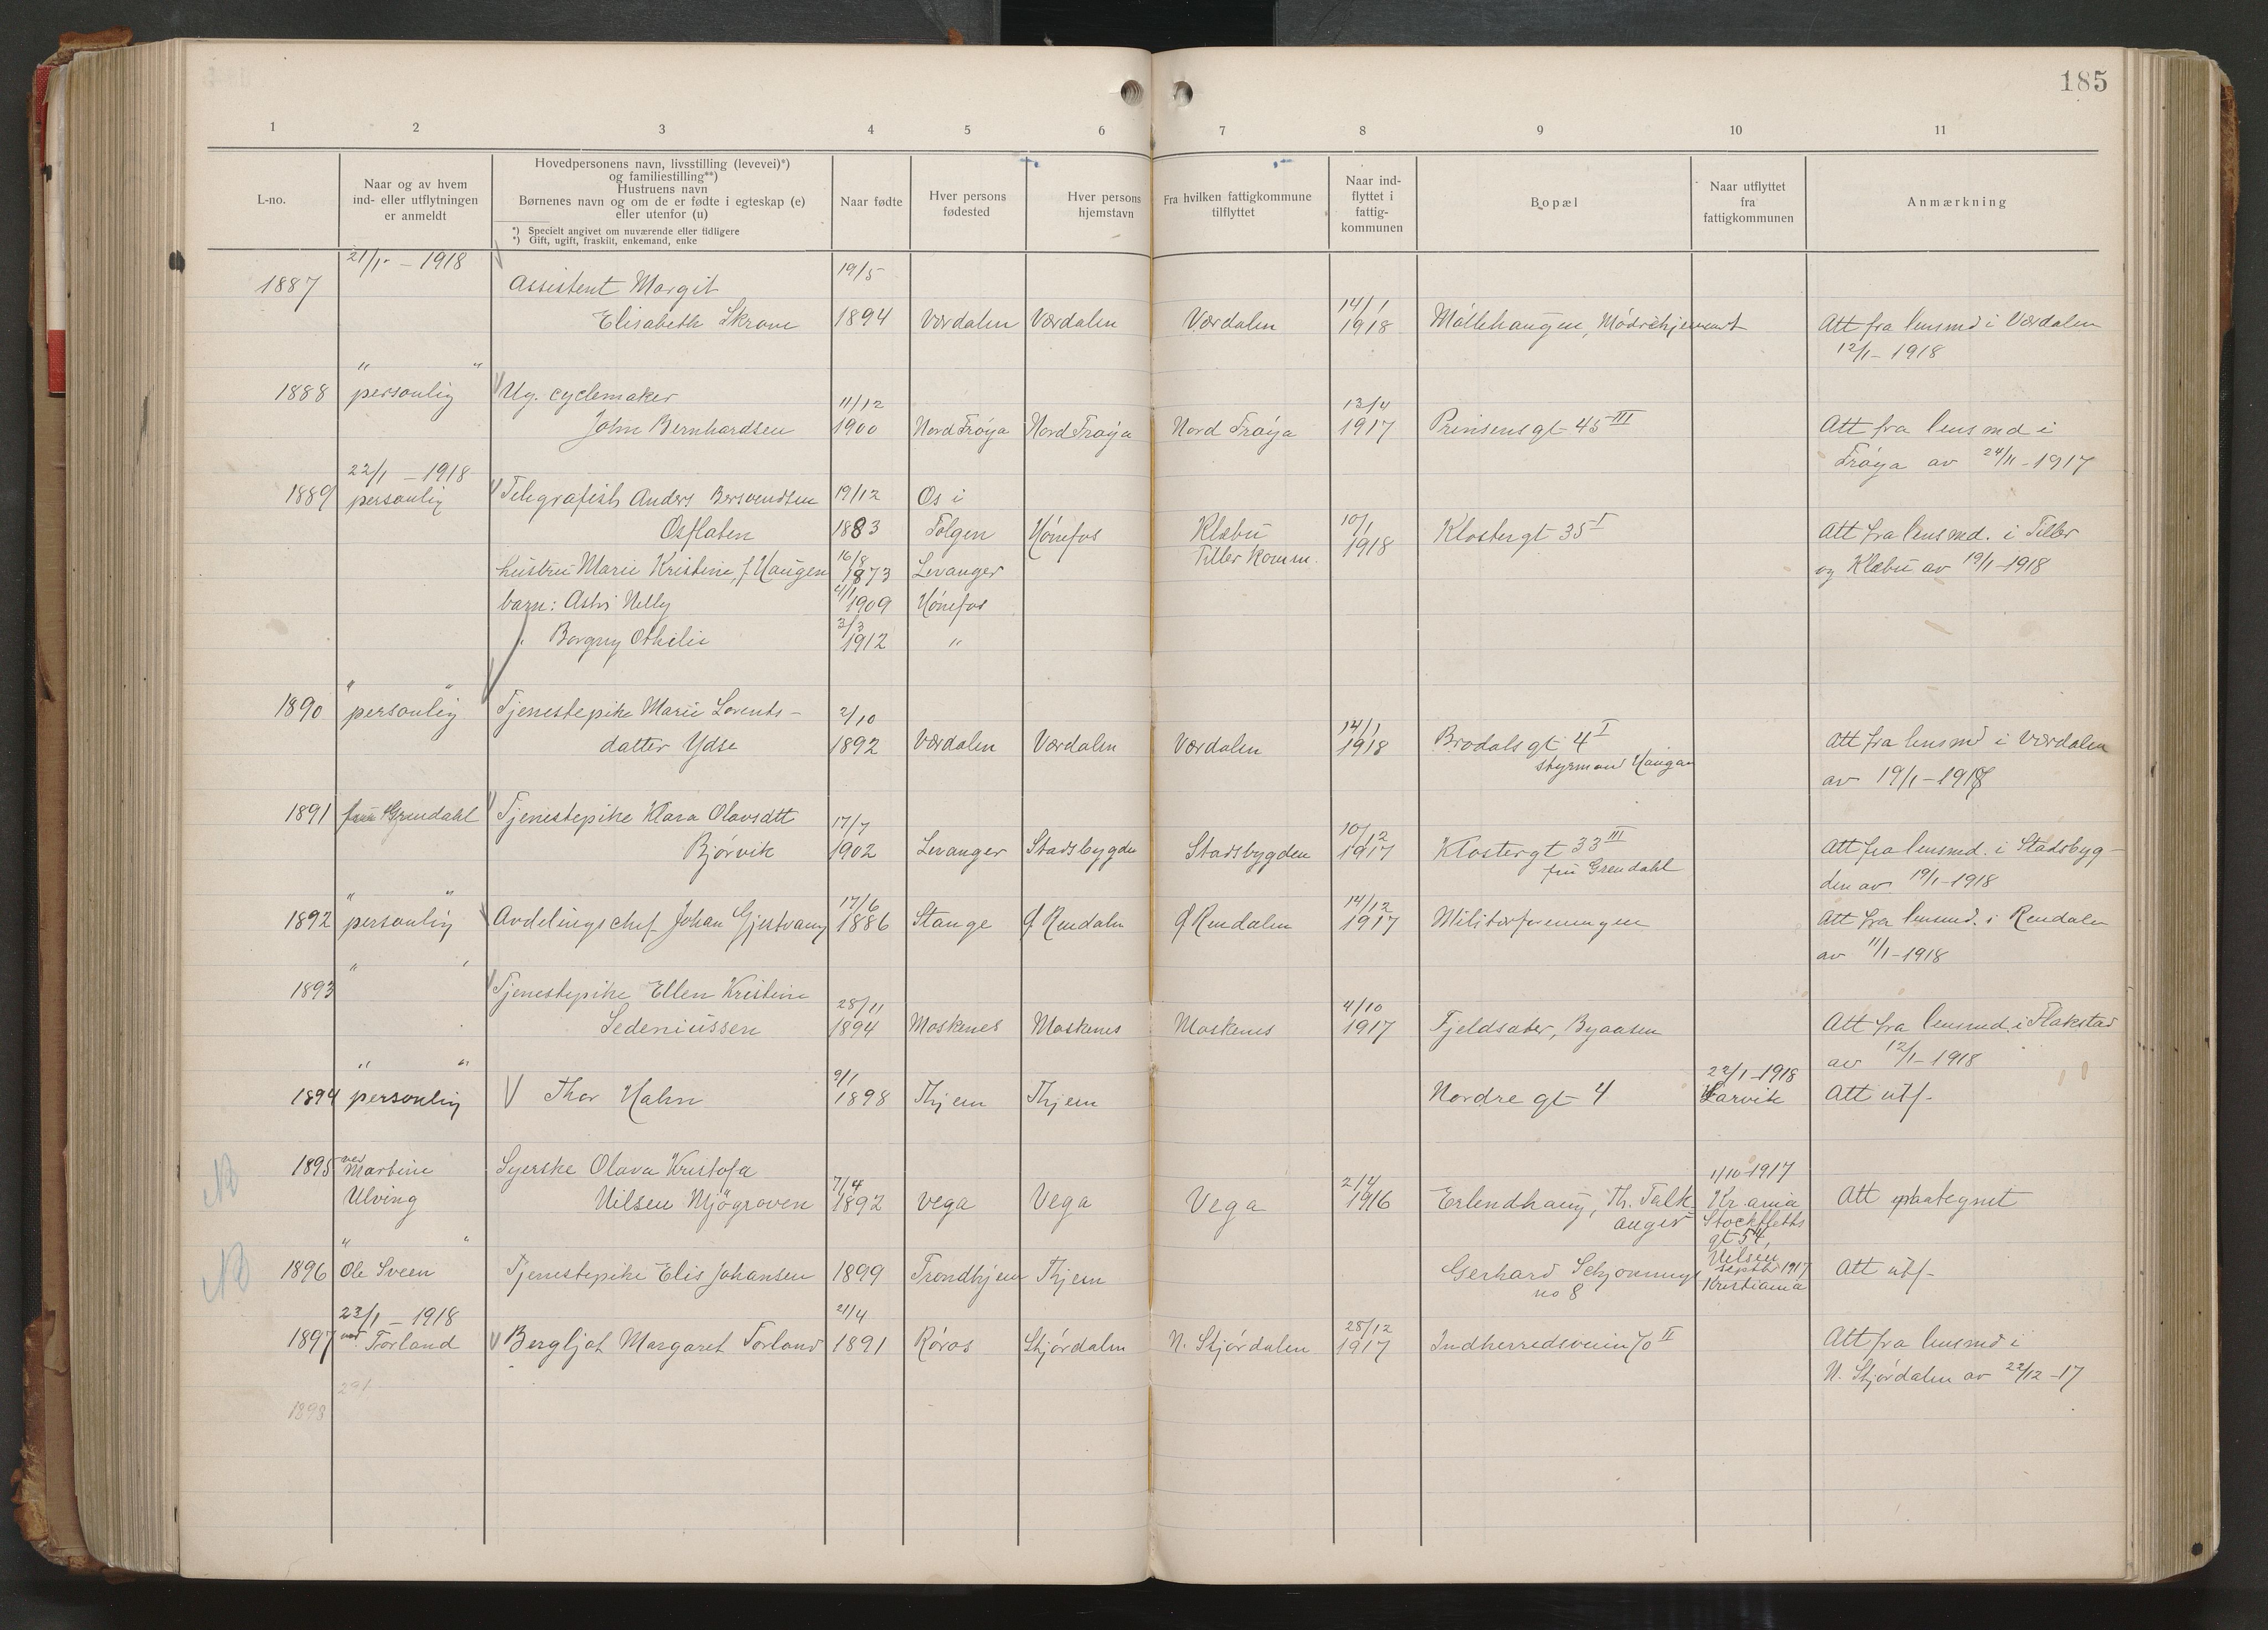 185
1 2 3 4 5 6 7 8 9 10 11
L-no.
Naar og av hvem
ind- eller utflytningen
er anmeldt
Hovedpersonens navn, livsstilling (levevei)*)
og familiestilling**)
Hustruens navn
Børnenes navn og om de er fødte i egteskap (e)
eller utenfor (u)
*) Specielt angivet om nuværende eller tidligere
*) Gift, ugift, fraskilt, enkemand, enke
Naar fødte
Hver persons
fødested
Hver persons
hjemstavn
Fra hvilken fattigkommune
tilflyttet
Naar ind-
flyttet i
fattig-
kommunen
Bopæl
Naar utflyttet
fra
fattigkommunen
Anmærkning
21/1 - 1918
1887 Assistent Margit 19/5
Elisabeth Skrove 1894 Værdalen Værdalen Værdalen 14/1 1918 Møllehaugen, Mødrehjemmet Att fra lensmd i Værdalen
12/1 - 1918
" "
1888 personlig Ug. cyclemaker 11/12 13/4
John Bernhardsen 1900 Nord Frøya Nord Frøya Nord Frøya 1917 Prinsensgt 45 III Att fra lensmd i
Frøya av 24/11 - 1917
22/1 - 1918
1889 personlig Telegrafist Anders Bersvendsen 19/12 Os i
Osflaten 1883 Tolgen Hønefos Klæbu 10/1 1918 Klostergt 35 I Att fra lensmd. i Tiller
Tiller Komm.
hustru Marie Kristine, f. Haugen 16/8 1873 Levanger og Klæbu av 19/1-1918
barn: Astri Nelly 1909 Hønefos
" Borgny Othelie 3/3 1912 "
" "
1890 personlig Tjenestepike Marie Lorents- 2/10
datter Ydse 1892 Værdalen Værdalen Værdalen 14/1 1918 Brodalsgt 4 I Att fra lensmd i Værdalen
styrmand Haugan av 19/1-1918
1891 fru Grendahl Tjenestepike Klara Olavsdtt 17/7
Bjørvik 1902 Levanger Stadsbygden Stadsbygden 10/12 1917 Klostergt 33 III Att fra lensmd. i Stadsbyg-
fru Grendahl den av 19/1-1918
" "
1892 personlig Avdelingschef Johan Gjestvang 17/6 1886 Stange Ø Rendalen Ø Rendalen 14/12 1917 Militærforeningen Att fra lensmd. i Rendalen
av 11/1-1918
" "
1893 Tjenestepike Ellen Kristine 28/11 4/10
Sedeniussen 1894 Moskenes Moskenes Moskenes 1917 Fjeldsæter, Byaasen Att fra lensmd. i Flakstad
av 12/1-1918
" "
1894 personlig Thor Hahn 9/1 1898 Thjem Thjem Nordre gt 4 22/1-1918 Larvik Att utf-
1895 ved Martine Syerske Olava Kristofa 1/10-1917
Ulving Nilsen Mjøgraven 7/4 1892 Vega Vega Vega 2/4 1916 Erlendhaug, Th. Falk- Kr ania Att paategnet
anger Stockfleths
gt 54,
Nilsen
" "
1896 Ole Sveen Tjenestepike Elis Johansen 1899 Trondhjem Thjem Gerhard Schønningsgt septbr 1917 Att utf-
no 8 Kristiania
23/1 - 1918
1897 ved Torland Bergljot Margaret Torland 21/4 1891 Røros Stjørdalen N. Stjørdalen 28/12 1917 Indherredsveien 70 II Att fra lensmd i
N. Stjørdalen av 22/12-17
1898